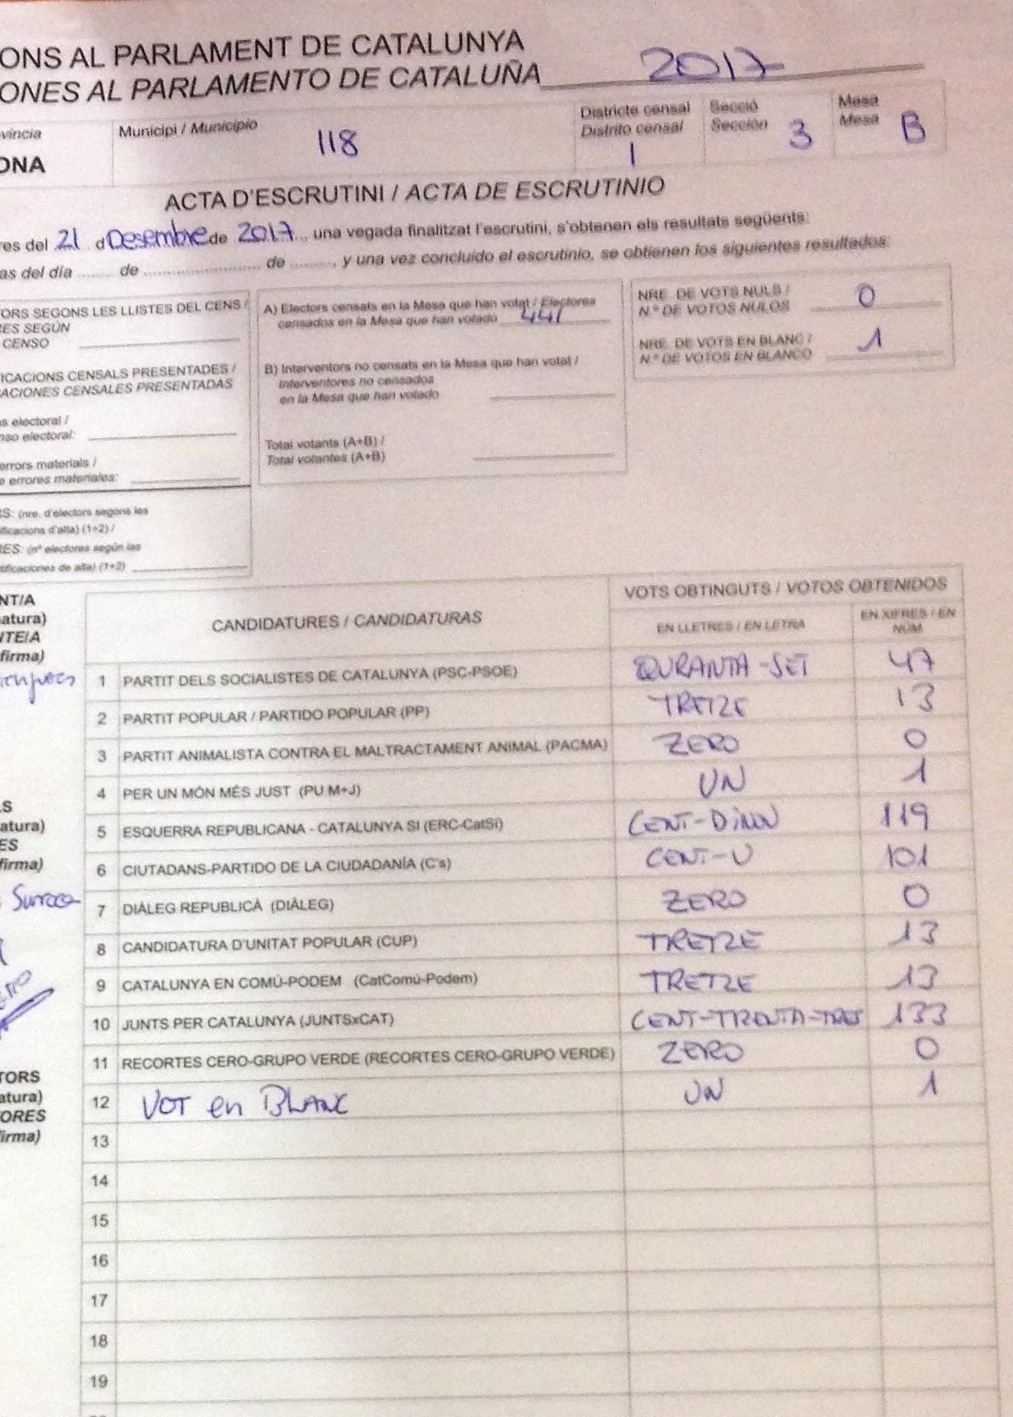 ONS AL PARLAMENT DE CATALUNYA
ONES AL PARLAMENTO DE CATALUÑA 2017
víncia Municipi / Municipio 118 Districte censal Secció Mesa
Distrito censal Sección Mesa
ONA 1 3 B
ACTA D'ESCRUTINI / ACTA DE ESCRUTINIO
res del 21 d Desembre de 2017 ..., una vegada finalitzat l'escrutini, s'obtenen els resultats següents:
as del día ........ de .......................... de ........, y una vez concluido el escrutinio, se obtienen los siguientes resultados:
TORS SEGONS LES LLISTES DEL CENS /
RES SEGÚN
CENSO
ICACIONS CENSALS PRESENTADES /
CACIONES CENSALES PRESENTADAS
s electoral /
nso electoral:
errors materials /
e errores materiales:
S: (nre. d'electors segons les
ificacions d'alta) (1+2) /
RES: (nº electores según las
tificaciones de alta) (1+2)
A) Electors censats en la Mesa que han votat / Electores
censados en la Mesa que han votado 441
B) Interventors no censats en la Mesa que han votat /
Interventores no censados
en la Mesa que han votado
Total votants (A+B) /
Total votantes (A+B)
NRE. DE VOTS NULS /
N.º DE VOTOS NULOS 0
NRE. DE VOTS EN BLANC /
N.º DE VOTOS EN BLANCO 1
NT/A
atura)
TE/A
firma)
S
atura)
ES
firma)
Surroca
TORS
atura)
ORES
firma)
CANDIDATURES / CANDIDATURAS VOTS OBTINGUTS / VOTOS OBTENIDOS
EN LLETRES / EN LETRA EN XIFRES / EN
NÚM.
1 PARTIT DELS SOCIALISTES DE CATALUNYA (PSC-PSOE) QURANTA-SET 47
2 PARTIT POPULAR / PARTIDO POPULAR (PP) TRETZE 13
3 PARTIT ANIMALISTA CONTRA EL MALTRACTAMENT ANIMAL (PACMA) ZERO 0
4 PER UN MÓN MÉS JUST (PU M+J) UN 1
5 ESQUERRA REPUBLICANA - CATALUNYA SÍ (ERC-CatSí) CENT-DINOU 119
6 CIUTADANS-PARTIDO DE LA CIUDADANÍA (C's) CENT-U 101
7 DIÀLEG REPUBLICÀ (DIÀLEG) ZERO 0
8 CANDIDATURA D'UNITAT POPULAR (CUP) TRETZE 13
9 CATALUNYA EN COMÚ-PODEM (CatComú-Podem) TRETZE 13
10 JUNTS PER CATALUNYA (JUNTSxCAT) CENT-TRENTA-TRES 133
11 RECORTES CERO-GRUPO VERDE (RECORTES CERO-GRUPO VERDE) ZERO 0
12 VOT en BLANC UN 1
13
14
15
16
17
18
19